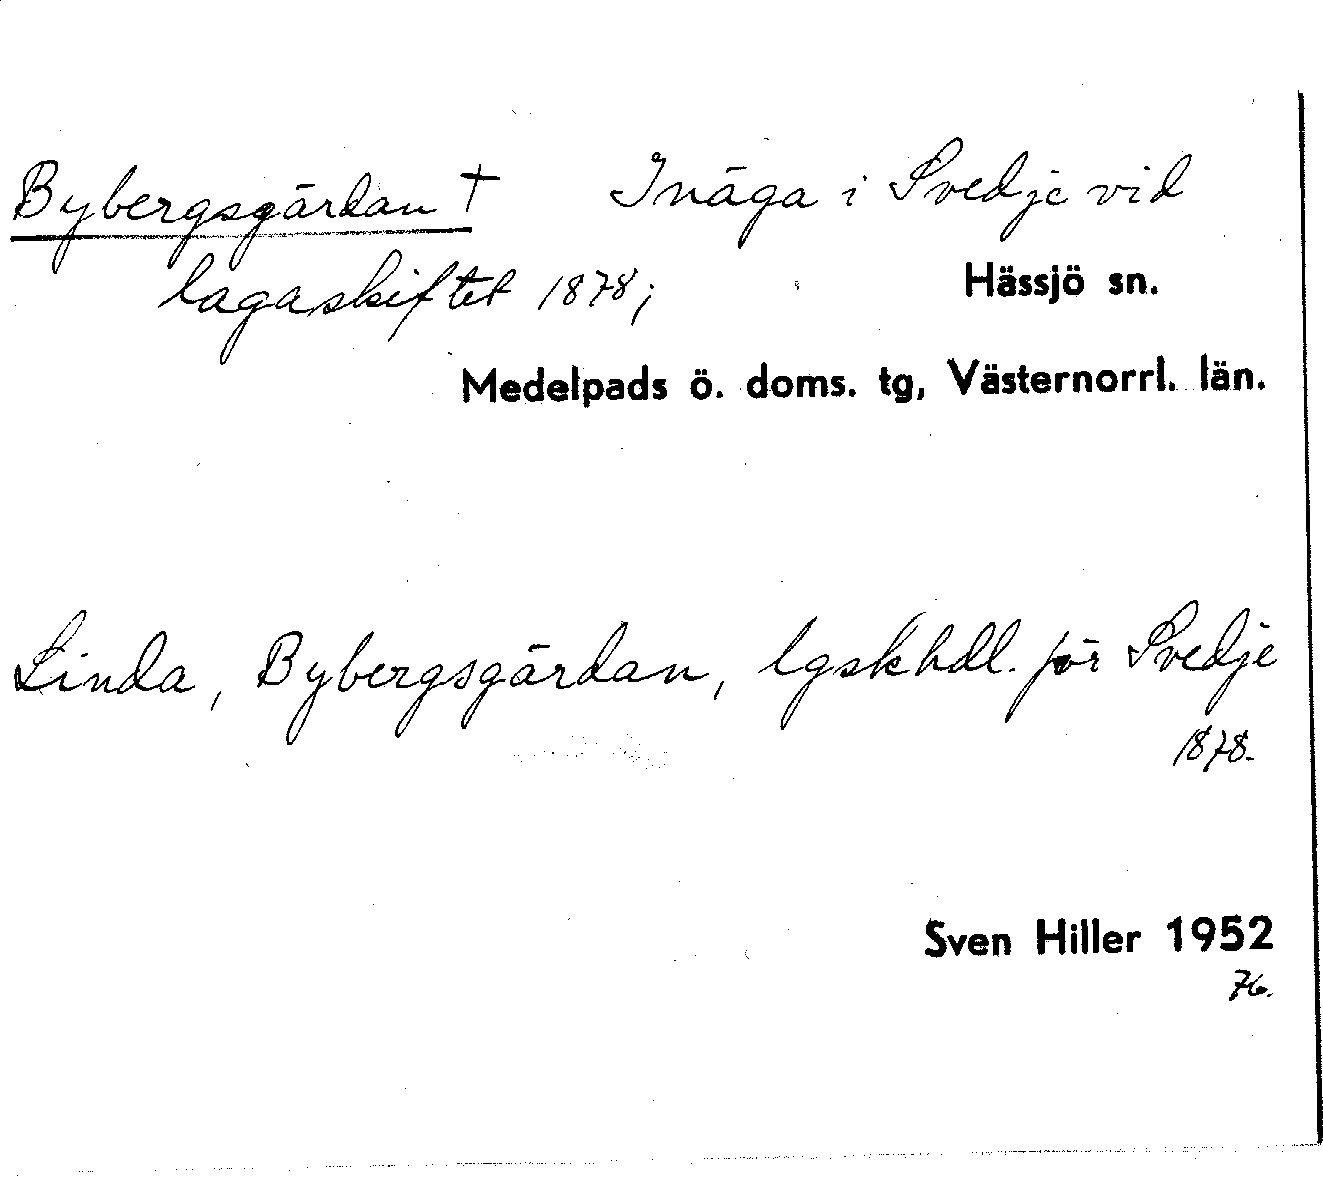 Bybergsgärdan † Inäga i Svedje vid
lagaskiftet 1878;
Hässjö sn.
Medelpads ö. doms. tg, Västernorrl. län.
Linda, Bybergsgärdan, lgskhdl. för Svedje
1878.
Sven Hiller 1952
76.